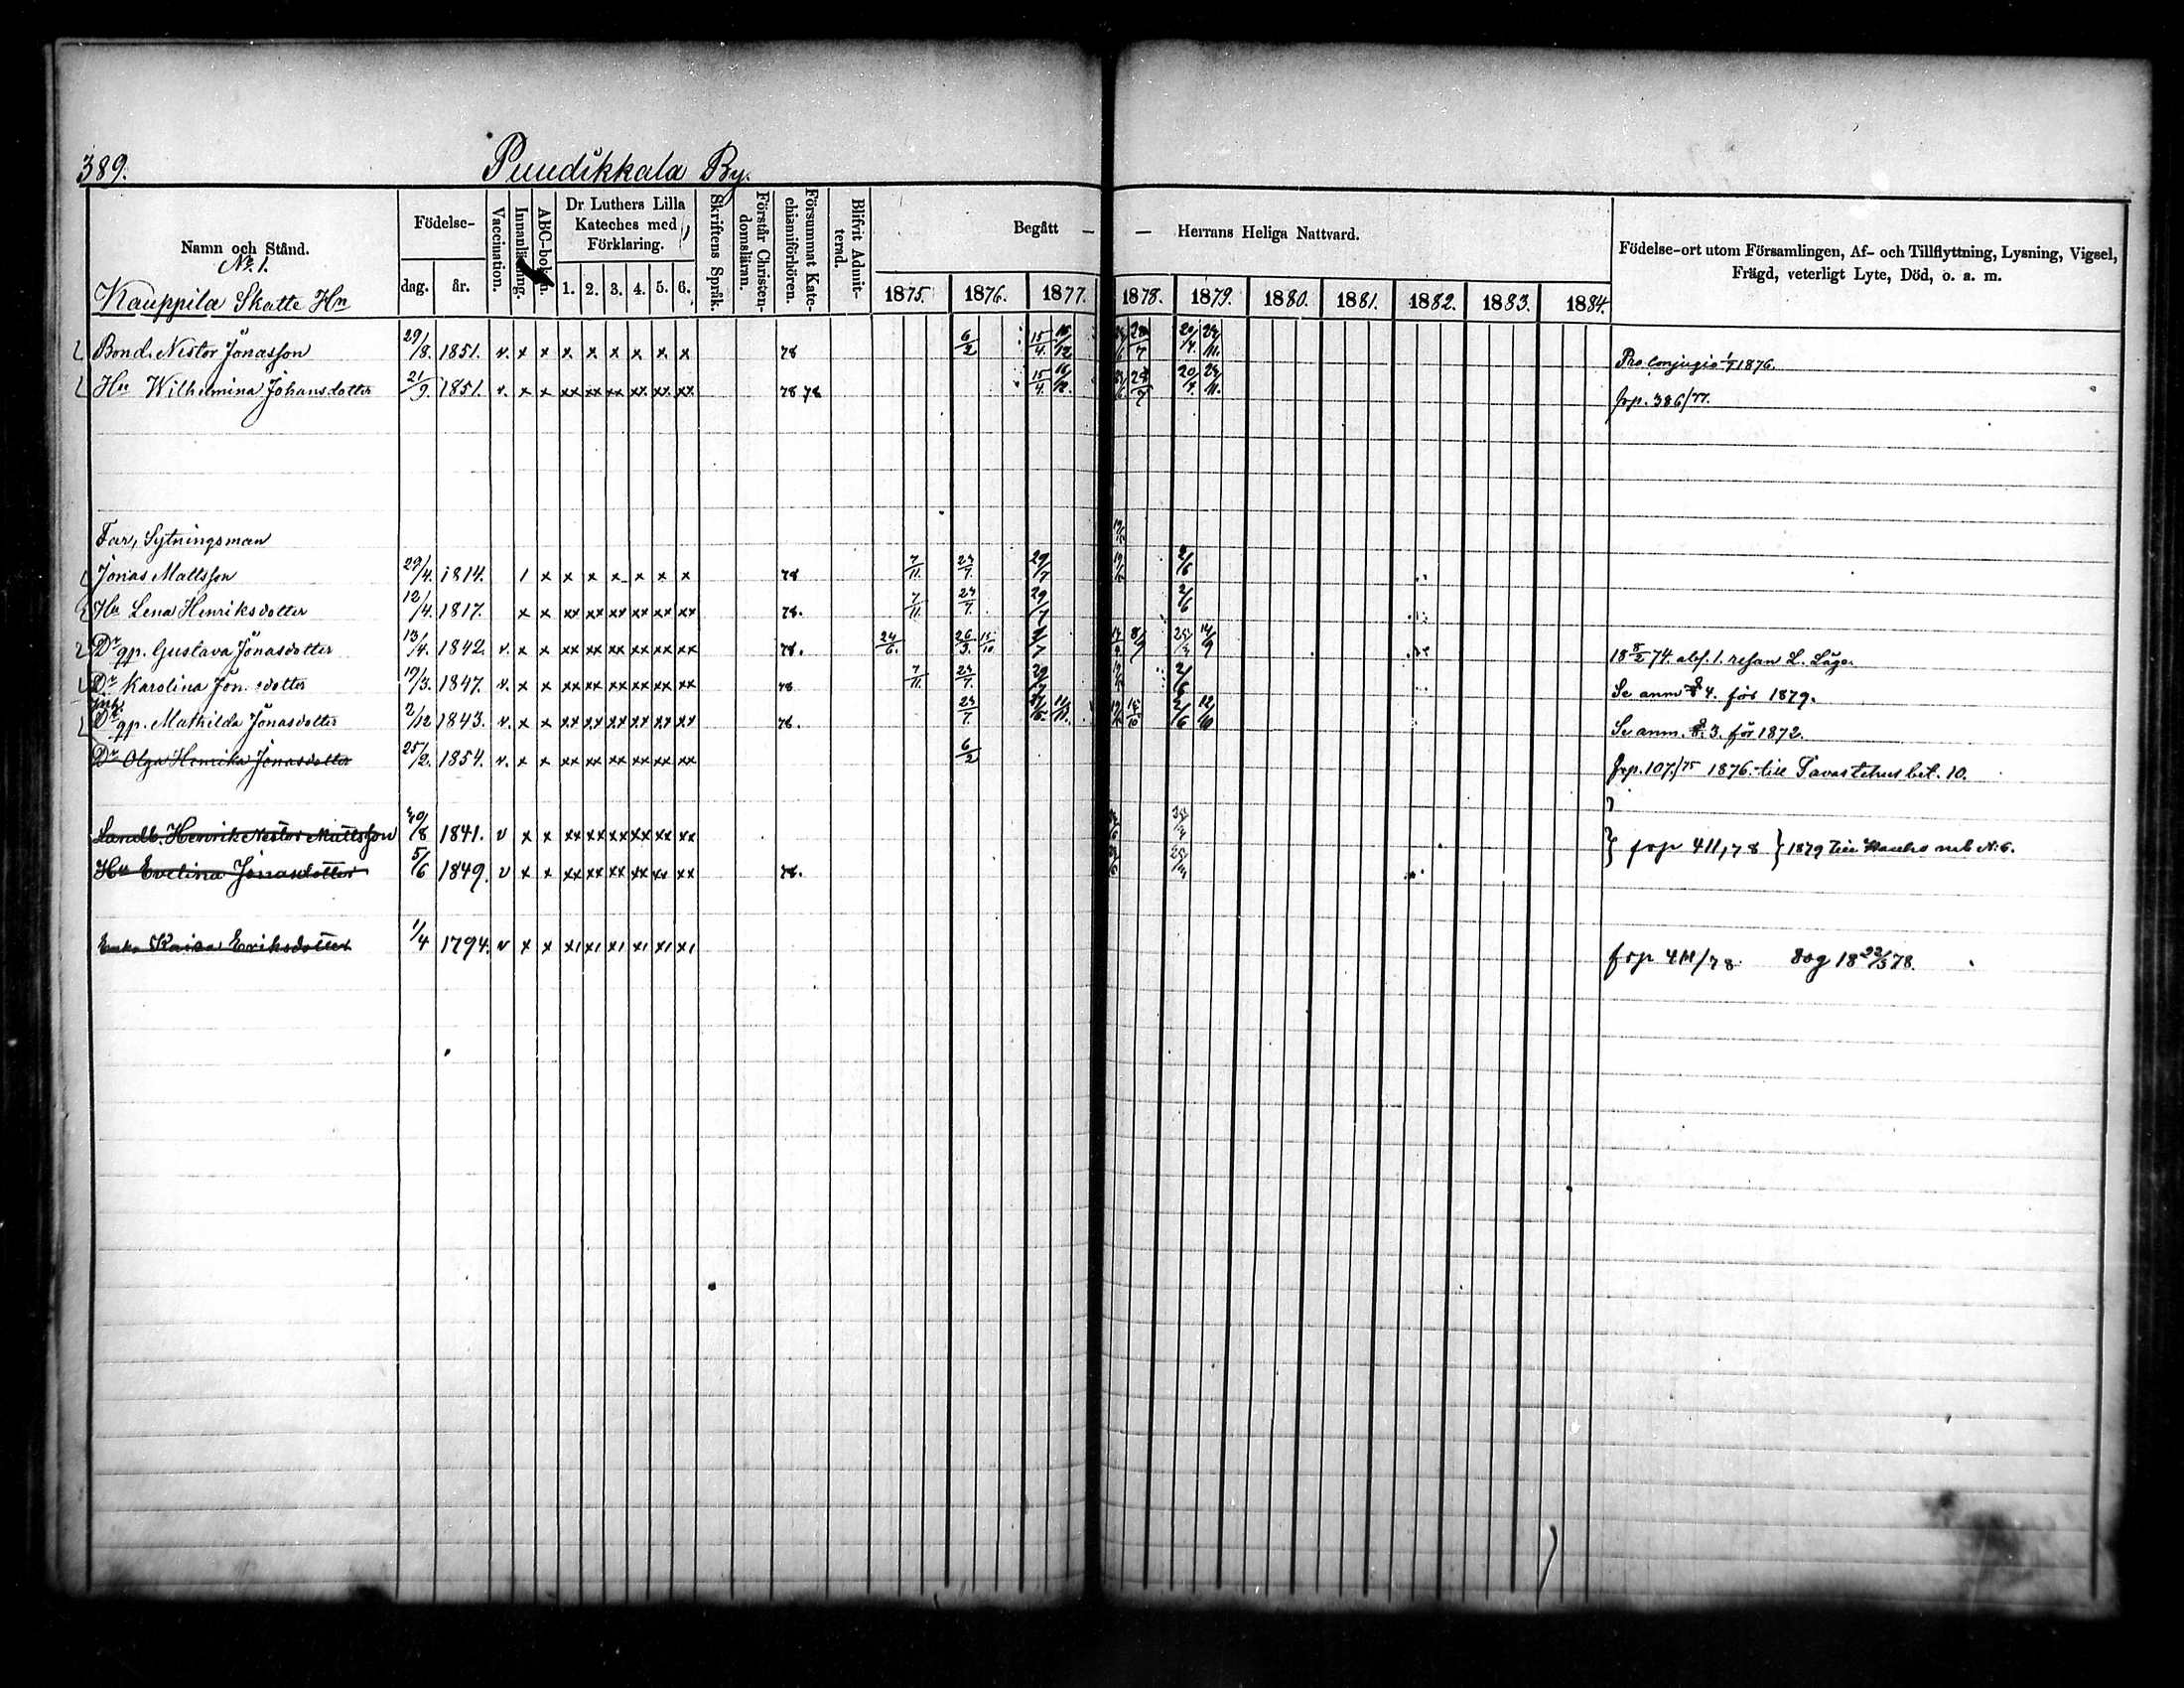 389.
Puudikkala By.
Namn och Stånd.
No. 1.
Kauppila Skatte Hn
Födelse-
dag. år.
Vaccination.
Innanläsning.
ABC-boken.
Dr Luthers Lilla
Kateches med
Förklaring.
1. 2. 3. 4. 5. 6.
Skriftens Språk.
Förstår Christen-
domsläran.
Försummat Kate-
chismiförhören.
Blifvit Admit-
terad.
Begått — — Herrans Heliga Nattvard.
1875. 1876. 1877. 1878. 1879. 1880. 1881. 1882. 1883. 1884.
Födelse-ort utom Församlingen, Af- och Tillflyttning, Lysning, Vigsel,
Frägd, veterligt Lyte, Död, o. a. m.
Bond. Nestor Jonasson 29/8. 1851. v. x x x. x x x x. x 78 6/2 15/4. 16/12 20/7. 24/11. Pro conjugio 1876.
Hu Wilhelmina Johansdotter 21/9. 1851. v. x x xx xx xx xx xx xx 78 78 15/4. 16/12. 20/7. 24/11. frp. 386/77.
Far, Sytningsman
Jonas Mattsson 29/4. 1814. 1 x x x x x x x 78 7/11. 24/7. 29/7 2/6
Hu Lena Henriksdotter 12/4. 1817. x x xx xx xx xx xx xx 78. 7/11. 24/7. 29/7 2/6
Dr gp. Gustava Jonasdotter 13/4. 1842. v. x x xx xx xx xx xx xx 78. 24/6. 26/3. 15/10 8/9 14/9 18 8/2 74. abs. 1. resan L. Läge.
Dr Karolina Jon. dotter 19/3. 1847. v. x x xx xx xx xx xx xx 78 7/11. 24/7. 2/6 Se anm 4. för 1879.
Dr gp. Mathilda Jonasdotter 2/12 1843. v. x x xx xx xx xx xx xx 78. 24/7. 11/11. 2/6 12/10 Se anm. 3. för 1872.
Dr Olga Henrika Jonasdotter 25/2. 1854. v. x x xx xx xx xx xx xx 6/2 frp. 107./75 1876. till Tavastehus bet. 10.
Landb. Henrik Nestor Mattsson 30/8 1841. v x x xx xx xx xx xx xx } frp 411,78 } 1879 till Hauho mb N: 6.
Hu Evelina Jonasdotter 5/6 1849. v x x xx xx xx xx xx xx 78.
Enka Kaisa Eriksdotter 1/4 1794. v x x x1 x1 x1 x1 x1 x1 frp 411/78 dog 18 22/3 78.